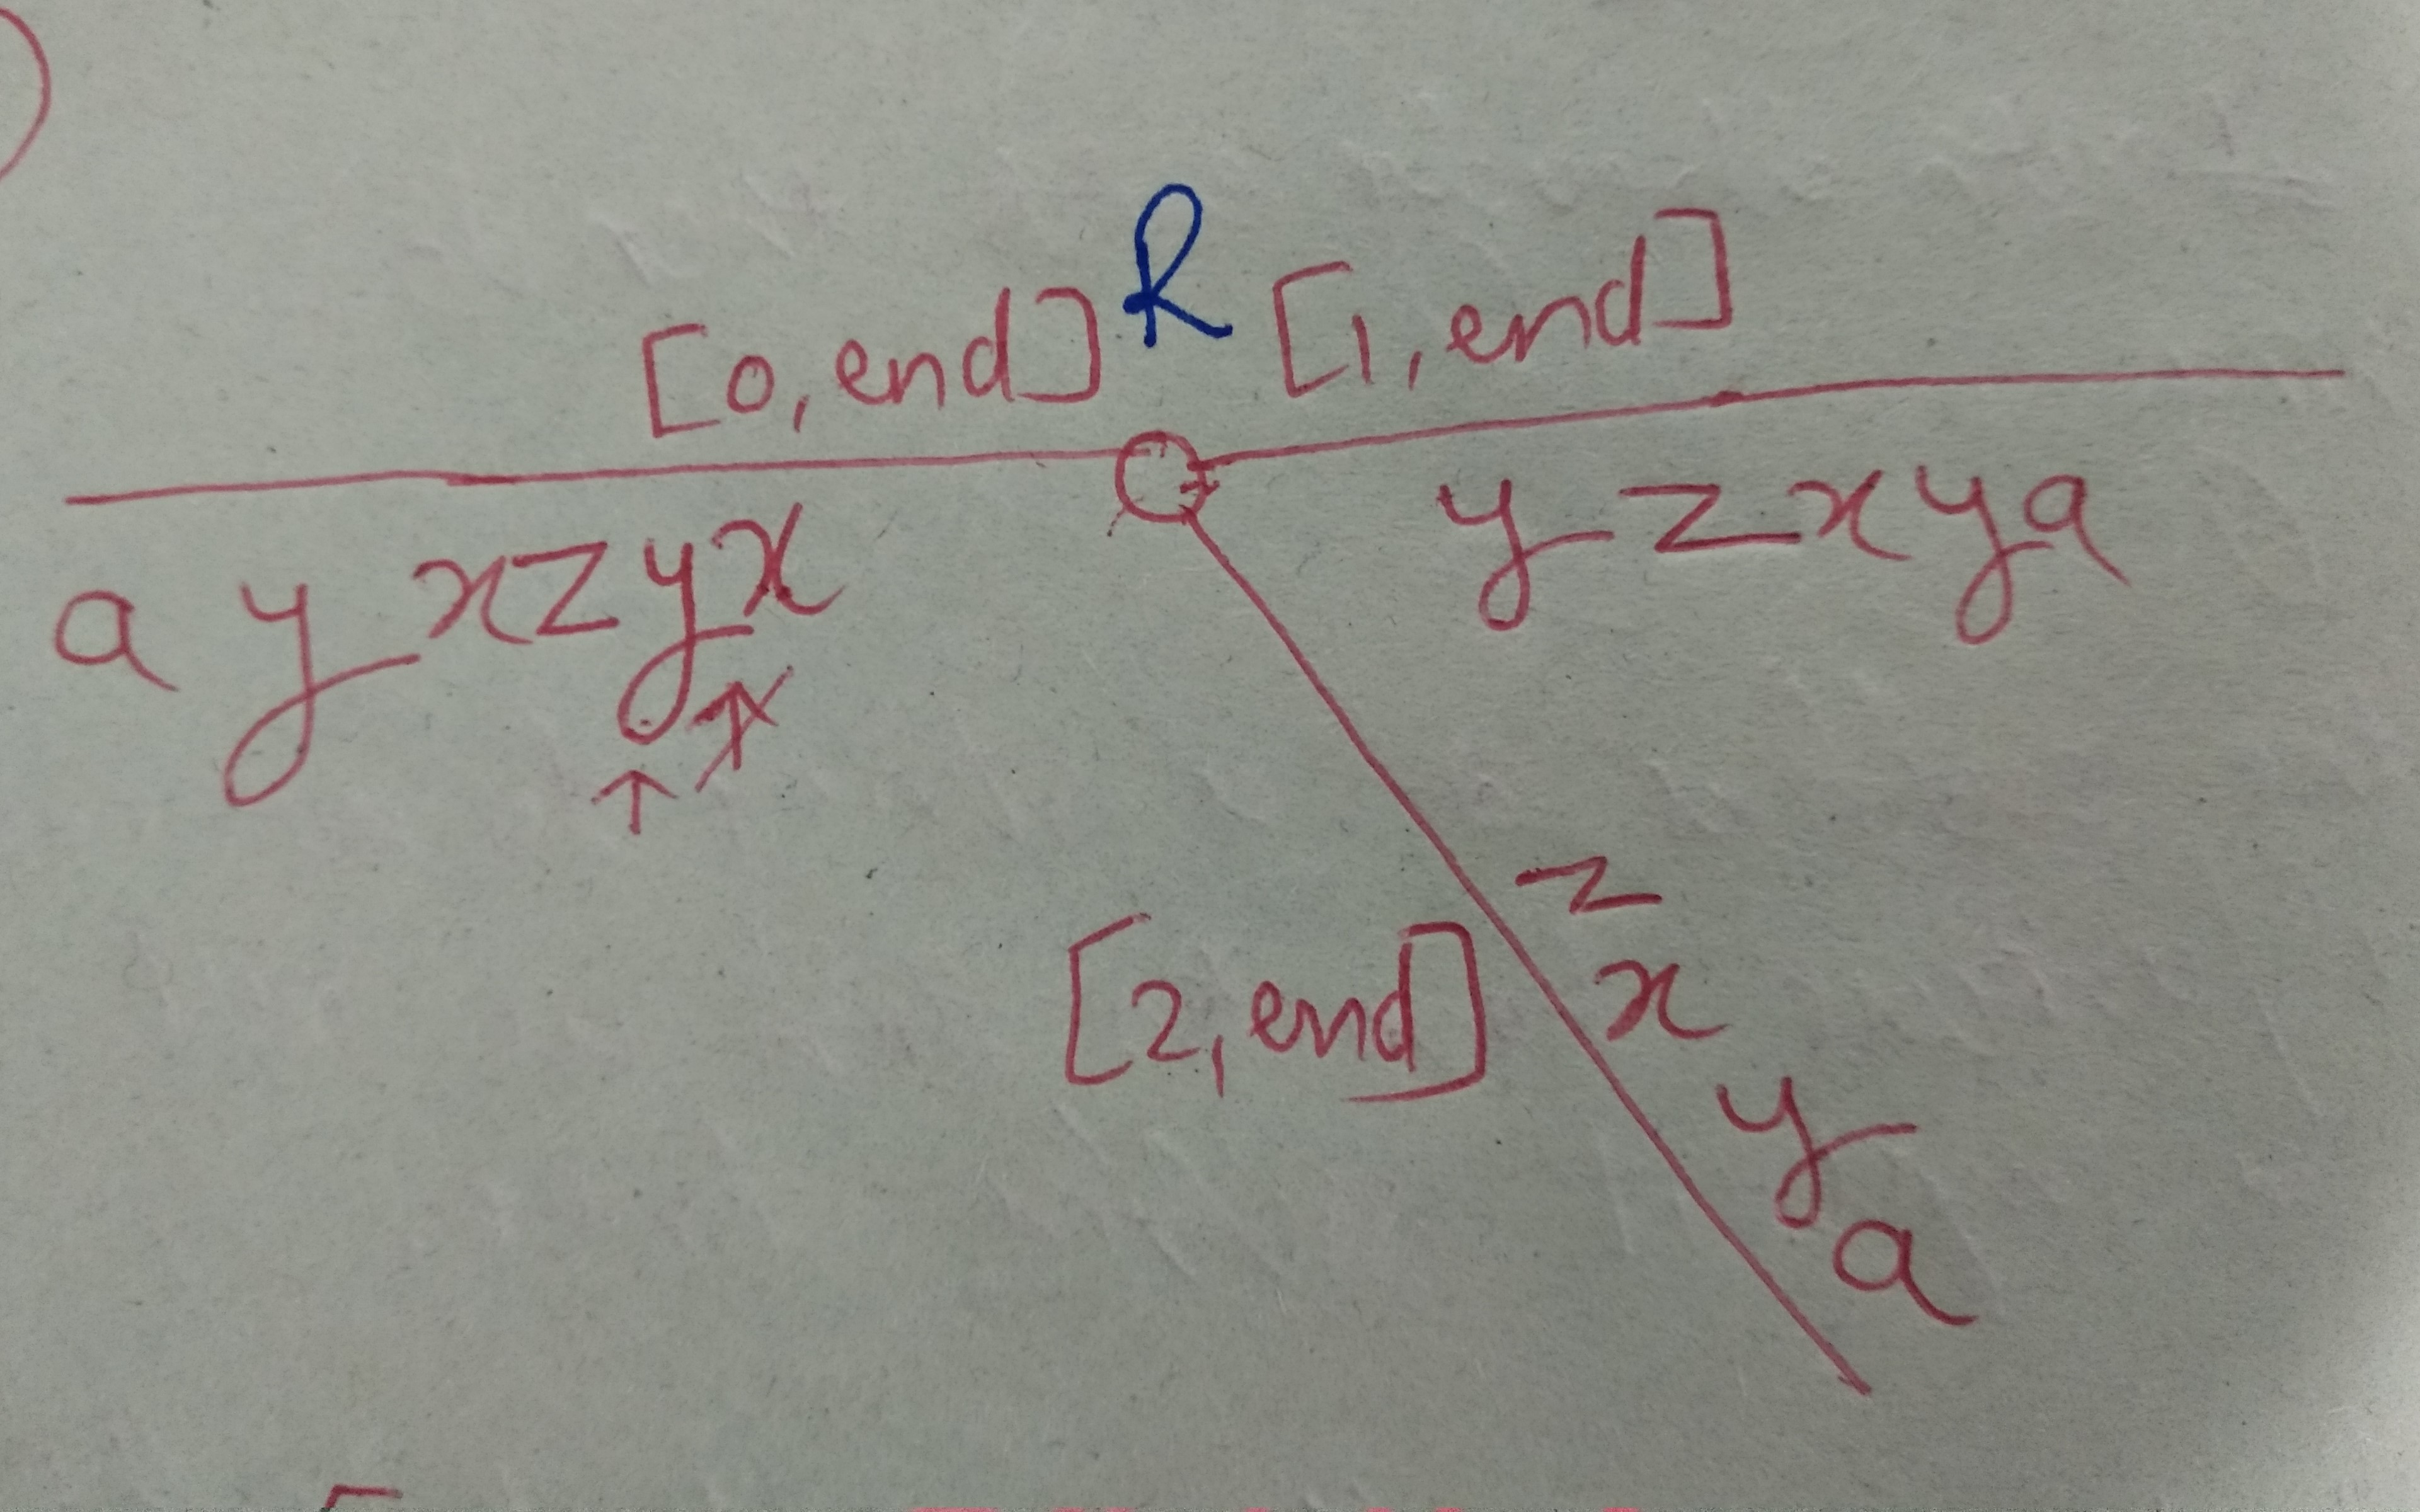 R
[0, end] [1, end]
a y x z y x
y z x y a
z
x
[2, end]
y
a